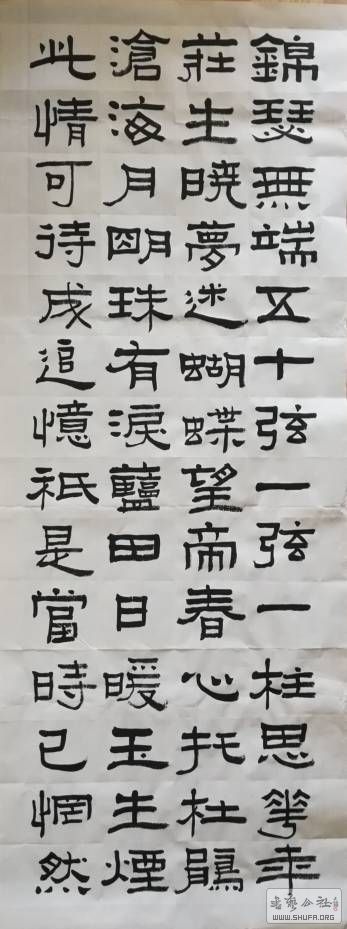 錦瑟無端五十弦一弦一柱思華年
莊生曉夢迷蝴蝶望帝春心托杜鵑
滄海月明珠有淚藍田日暖玉生煙
此情可待成追憶祇是當時已惘然
书艺公社
WWW.SHUFA.ORG